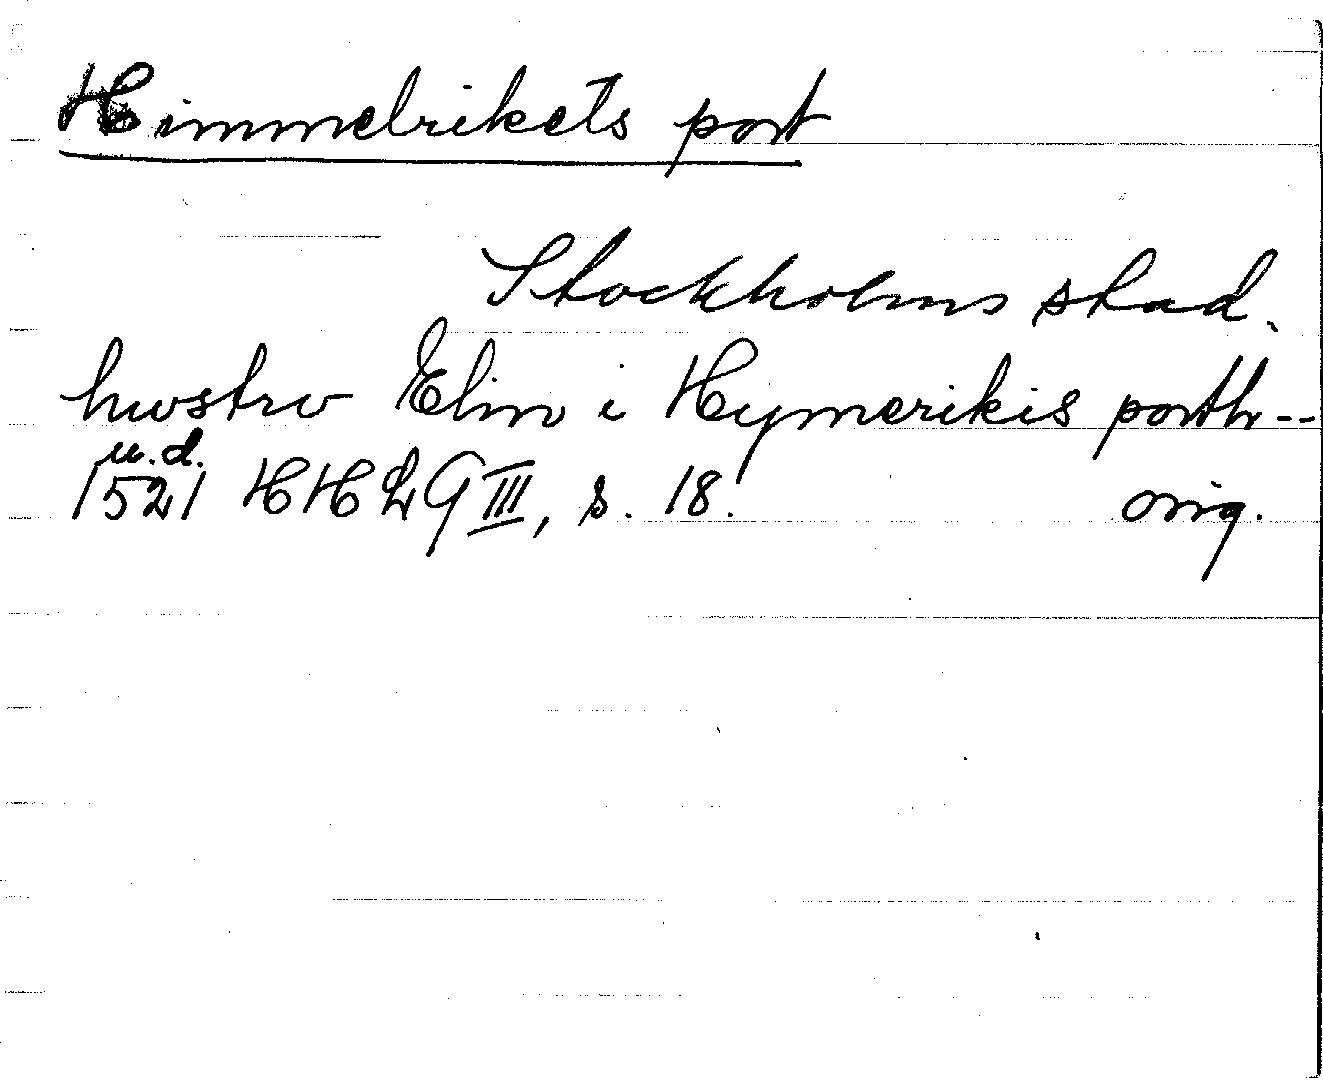 Himmelrikets port
Stockholms stad.
hwstrv Elin i Hymerikis porth--
u.d.
1521 HHLG III, s. 18. orig.